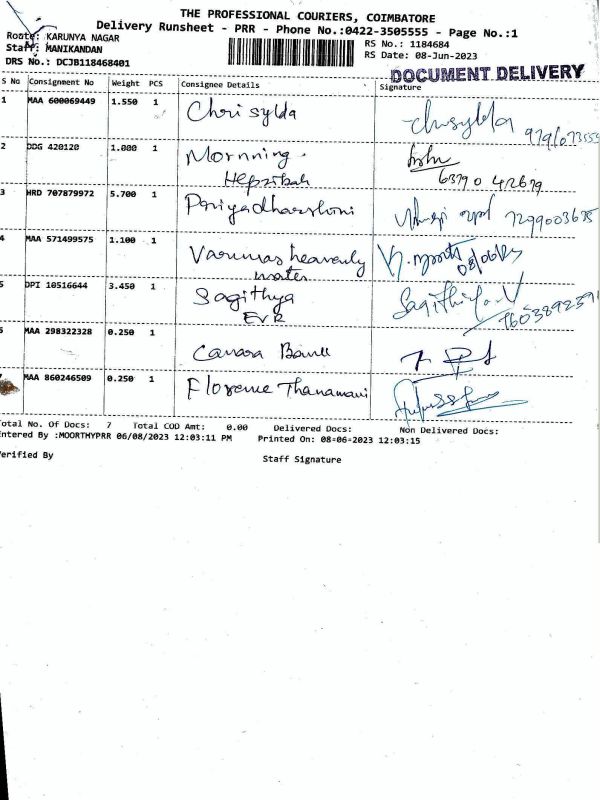 THE PROFESSIONAL COURIERS, COIMBATORE
Delivery Runsheet - PRR - Phone No.:0422-3505555 - Page No.:1
Route: KARUNYA NAGAR
RS No.: 1184684
Staff: MANIKANDAN
RS Date: 08-Jun-2023
DRS No.: DCJB118468401
DOCUMENT DELIVERY
S No Consignment No Weight PCS Consignee Details Signature
1 MAA 600069449 1.550 1 Chrisylda Chrisylda
2 DDG 420120 1.000 1 Mornning.
Hepzibah 63790 42679
3 HRD 707879972 5.700 1 Pariyadharshoni 7299003675
4 MAA 571499575 1.100 1 Varumas heavenly
water 08/06/23
5 DPI 10516644 3.450 1 Sagithya Sagithya.V
EVR
6 MAA 298322328 0.250 1 Canara Bank
MAA 860246509 0.250 1 Florence Thanamani
Total No. Of Docs: 7 Total COD Amt: 0.00 Delivered Docs: Non Delivered Docs:
Entered By :MOORTHYPRR 06/08/2023 12:03:11 PM Printed On: 08-06-2023 12:03:15
Verified By Staff Signature